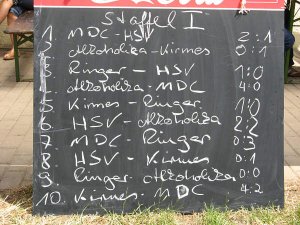 Staffel I
1. MDC - HSV 2:1
2. Alkoholika - Kirmes 0:1
3. Ringer - HSV 1:0
4. Alkoholika - MDC 4:0
5. Kirmes - Ringer 1:0
6. HSV - Alkoholika 2:2
7. MDC - Ringer 0:3
8. HSV - Kirmes 0:1
9. Ringer - Alkoholika 0:0
10. Kirmes - MDC 4:2